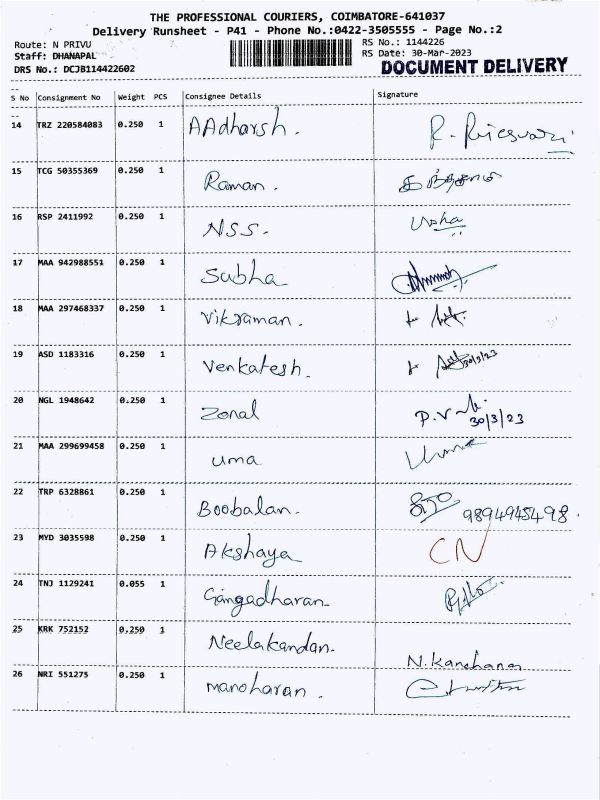 THE PROFESSIONAL COURIERS, COIMBATORE-641037
Delivery Runsheet - P41 - Phone No.:0422-3505555 - Page No.:2
Route: N PRIVU
RS No.: 1144226
Staff: DHANAPAL
RS Date: 30-Mar-2023
DRS No.: DCJB114422602
DOCUMENT DELIVERY
S No Consignment No Weight PCS Consignee Details Signature
14 TRZ 220584083 0.250 1 AAdharsh.
15 TCG 50355369 0.250 1 Raman.
16 RSP 2411992 0.250 1 NSS. Usha
17 MAA 942988551 0.250 1 Subha
18 MAA 297468337 0.250 1 Vikraman.
19 ASD 1183316 0.250 1 Venkatesh. 30/3/23
20 NGL 1948642 0.250 1 Zonal P.V
30/3/23
21 MAA 299699458 0.250 1 uma Uma
22 TRP 6328861 0.250 1 Boobalan. 9894945498.
23 MYD 3035598 0.250 1 Akshaya CN
24 TNJ 1129241 0.055 1 Gangadharan
25 KRK 752152 0.250 1 Neelakandan. N.Kanchana
26 NRI 551275 0.250 1 manoharan.